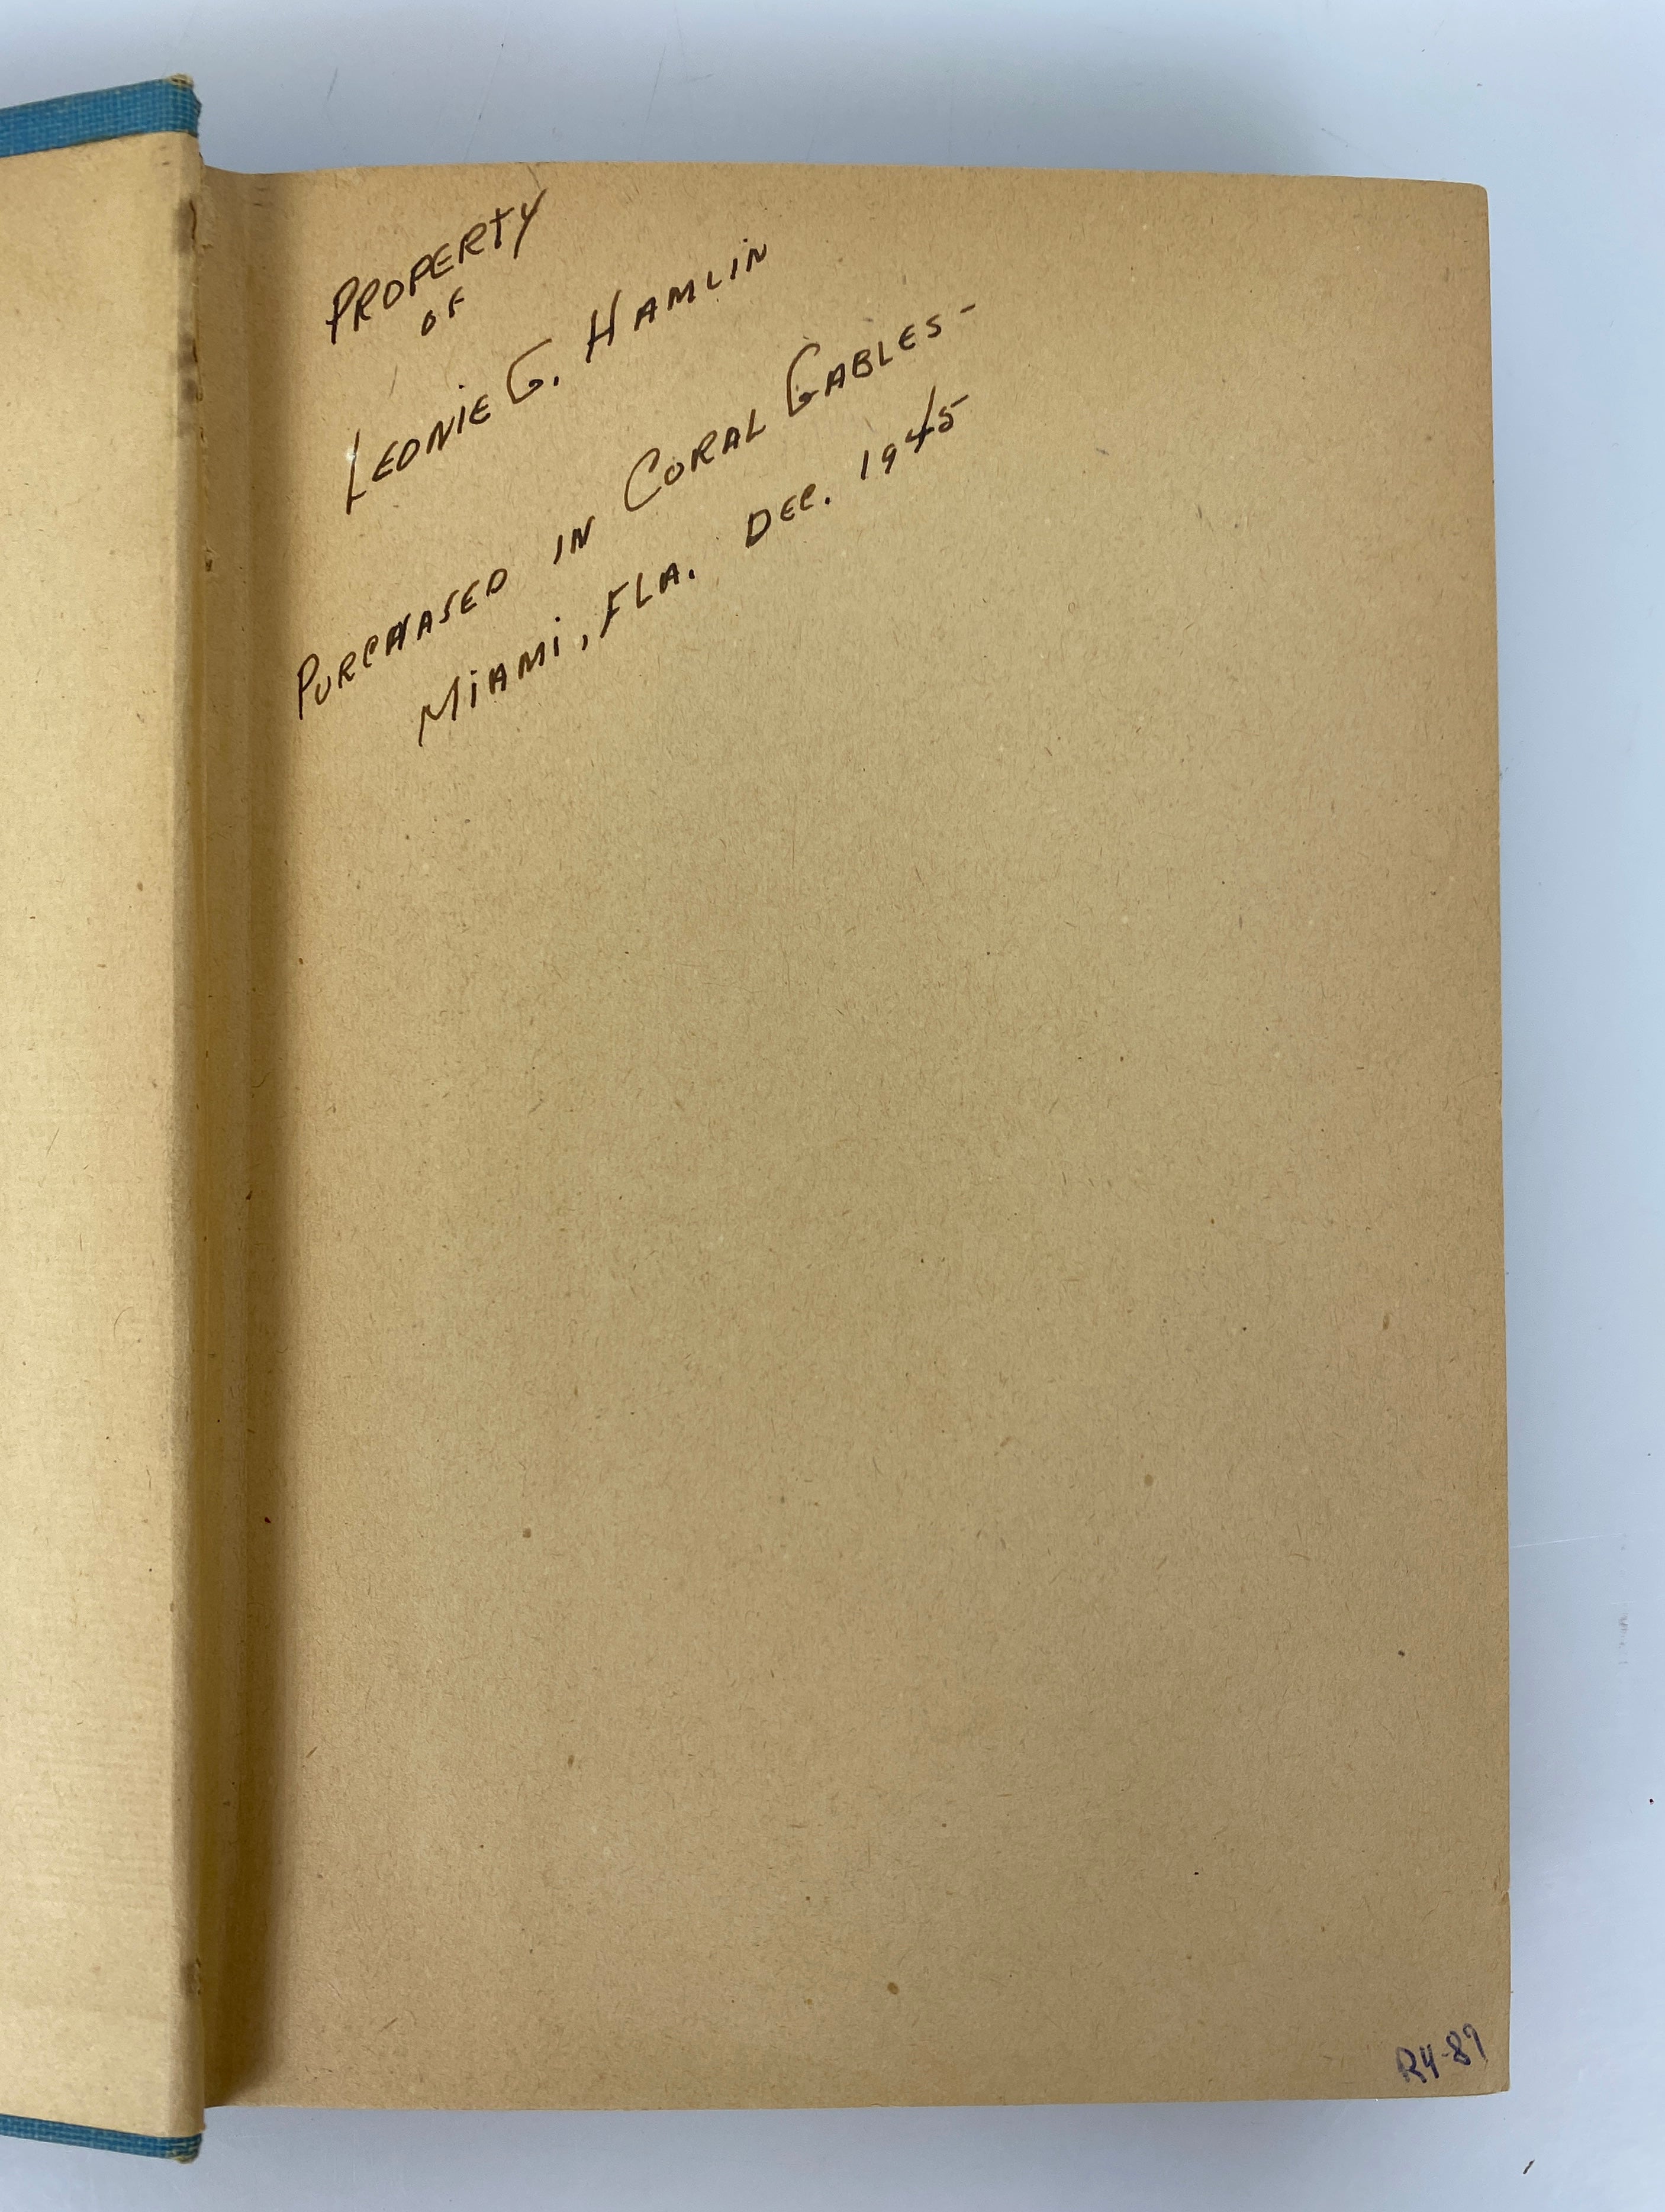 PROPERTY
OF
LEONIE G. HAMLIN
PURCHASED IN CORAL GABLES-
MIAMI, FLA. DEC. 1945
R4-89